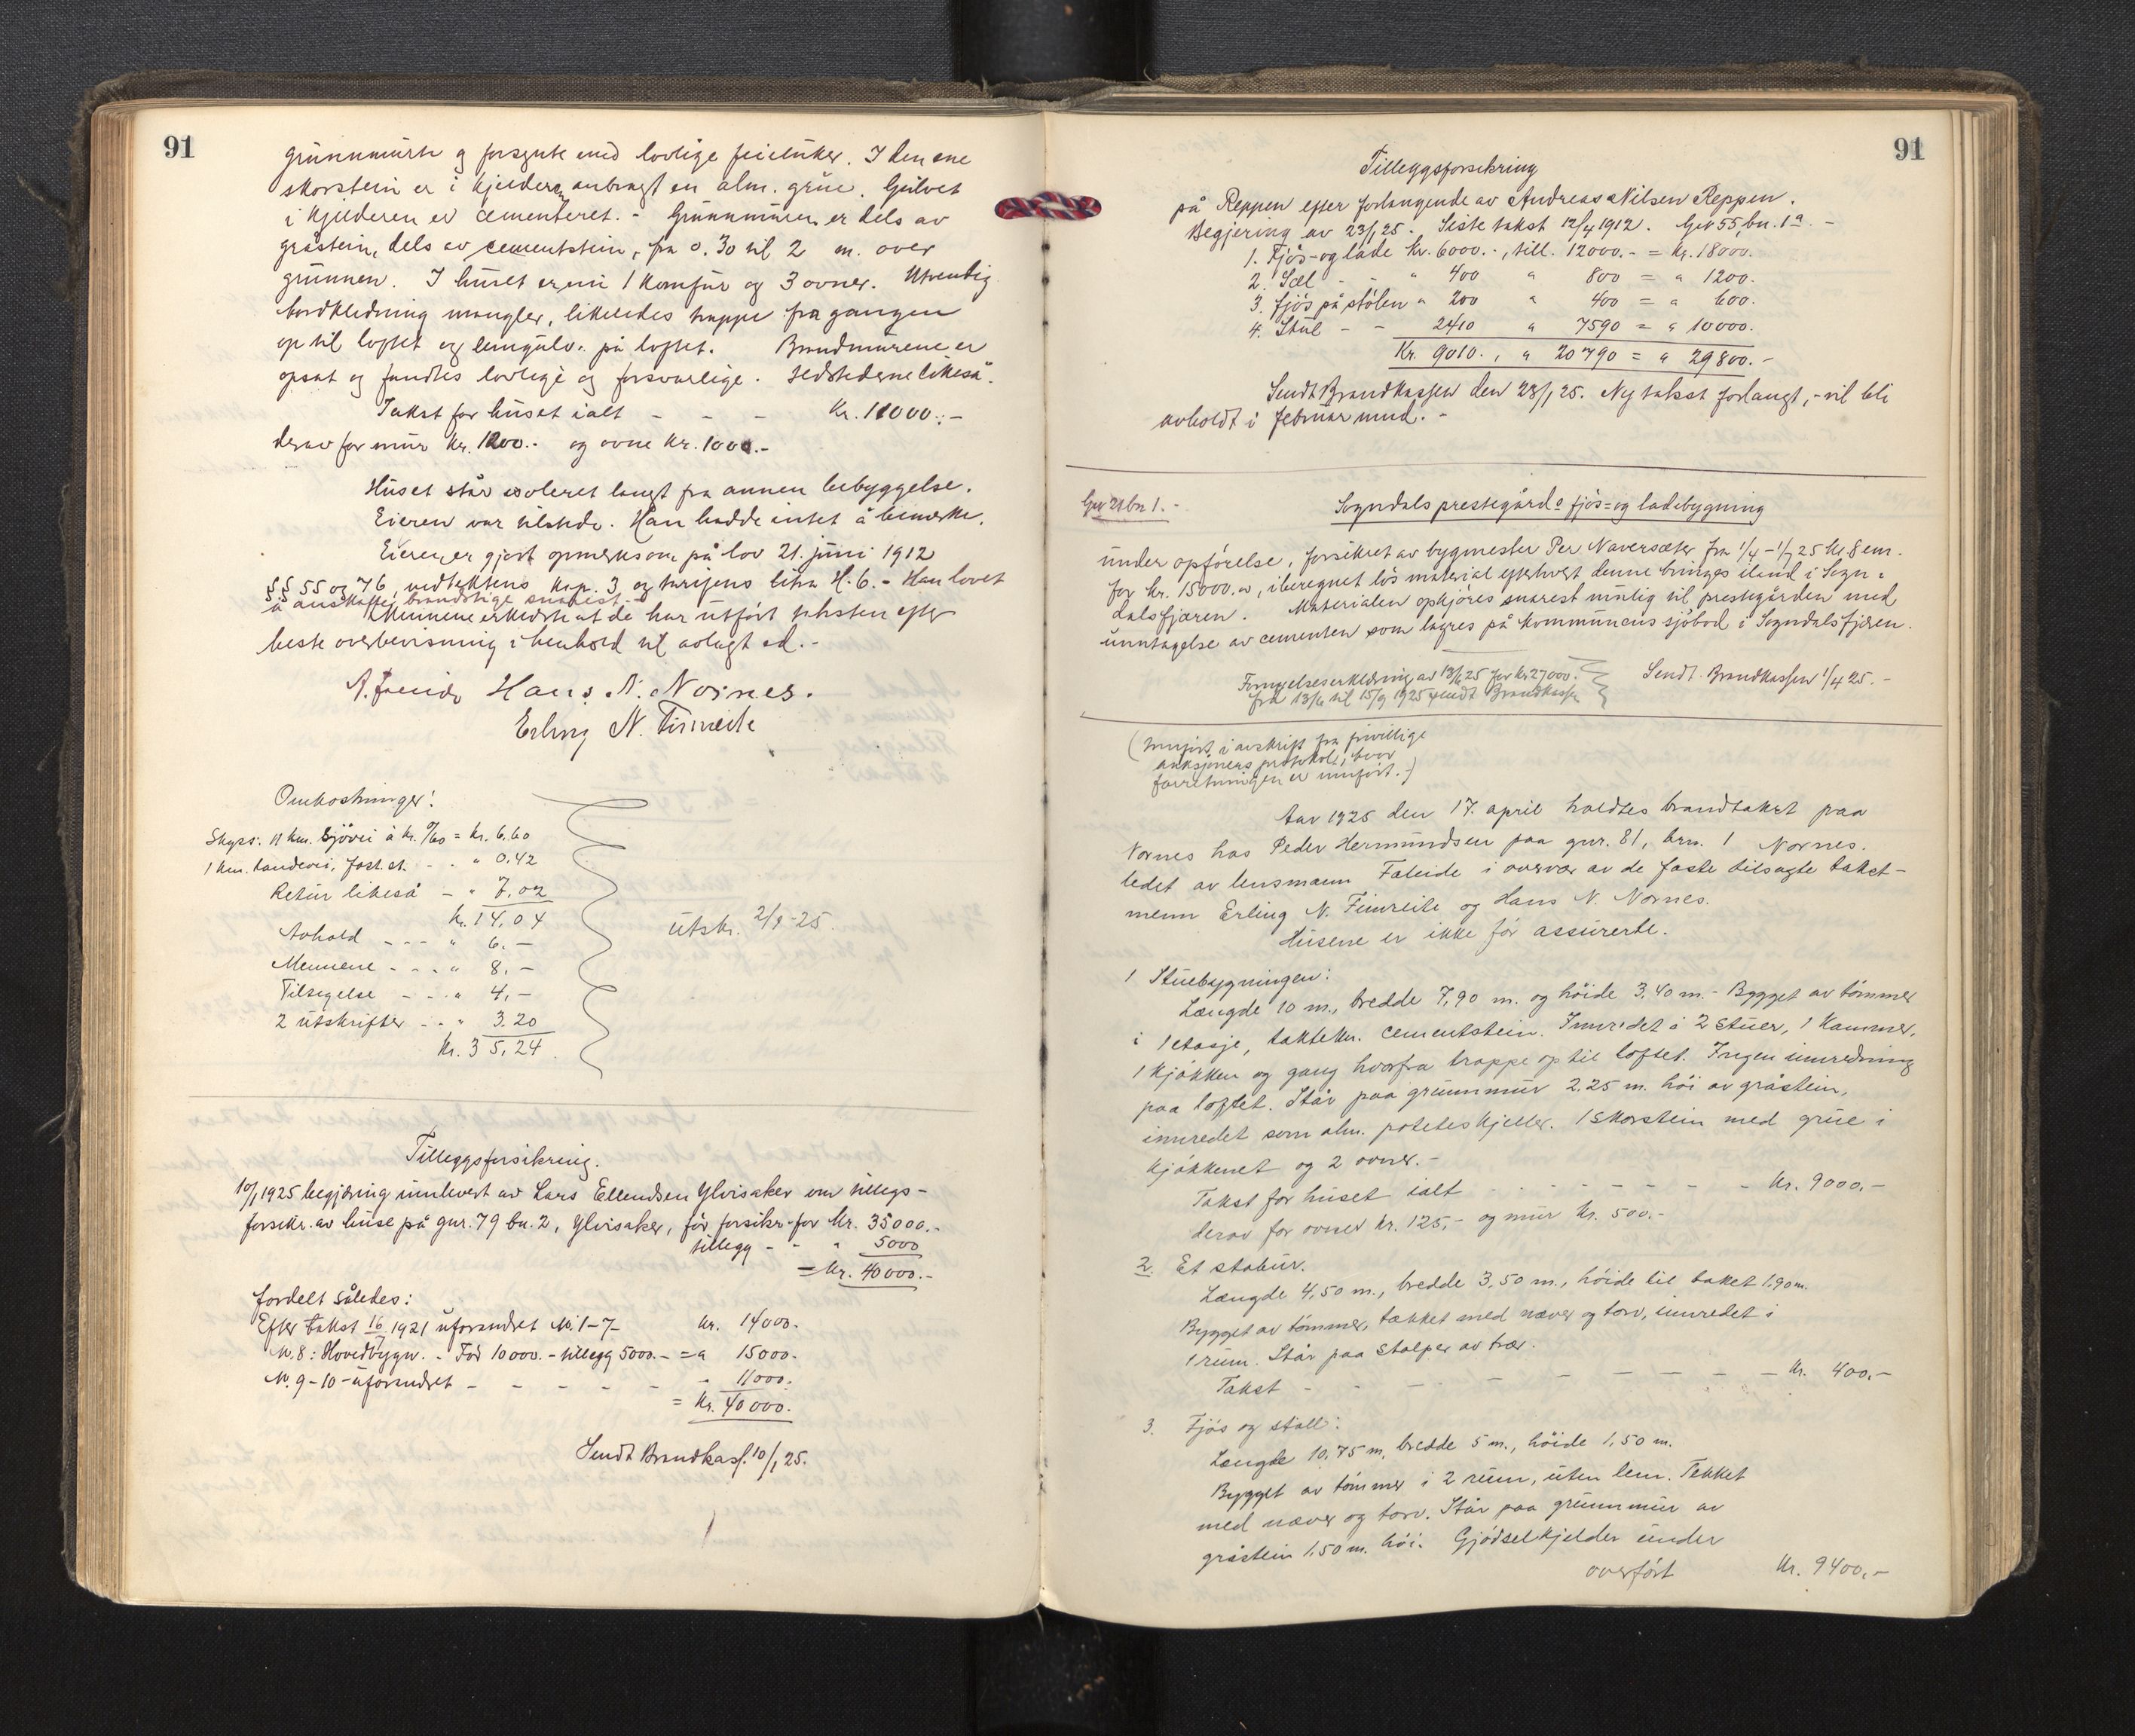 91
grunnmurte og forsynte med lovlige feieluker. I den ene
skorstein er i kjelderen anbragt en alm. grue. Gulvet
i kjelderen er cementeret. - Grunnmuren er dels av
gråstein, dels av cementstein, fra 0.30 til 2 m. over
grunnen. I huset er nu 1 komfur og 3 ovner. Utvendig
bordkledning mangler, likeledes trappe fra gangen
op til loftet og lemgulv på loftet. Brandmurene er
opsat og fandtes lovlige og forsvarlige. Ildstederne likeså.
Takst for huset ialt - - - Kr. 11000.-
derav for mur kr. 1200.- og ovne kr. 1000.-
Huset står isoleret langt fra annen bebyggelse.
Eieren var tilstede. Han hadde intet å bemerke.
Eieren er gjort opmerksom på lov 21. juni 1912
§§ 55 og 76, vedtektens kap. 3 og tarifens litra H. 6. - Han lovet
å anskaffe brandstige snarest. -
Mennene erklærte at de har utført taksten efter
beste overbevisning i henhold til avlagt ed. -
A. Faleide Hans N. Nornes.
Erling N. Fimreite
Omkostninger:
Skyss: 11 km. sjövei à kr. 0/60 = kr. 6.60
1 km. landevei, fast st. - - " 0.42
Retur likeså - " 7,02
kr. 14,04
Avhold - - - " 6. -
Mennene - - - " 8. -
Tilsigelse - - - " 4, -
2 utskrifter - - " 3.20
Kr. 35,24.
Utskr. 2/9-25.
Tilleggsforsikring.
10/1 1925 begjæring innlevert av Lars Ellendsen Ylvisaker om tillegs-
forsikr. av huse på gnr. 79 bn. 2, Ylvisaker, för forsikr. for Kr. 35000.-
tillegg - - " 5000
= Kr. 40000.-
fordelt således:
Efter takst 16/7 1921 uforandret N. 1-7 kr. 14000.-
N. 8: Hovedbygn. - För 10000.- tillegg 5000.- = " 15000.-
N. 9-10 - uforandret - - - - - " 11000.
= Kr. 40000.-
Sendt Brandkas. 10/1 25.
91
Tilleggsforsikring
på Reppen efter forlangende av Andreas Nilsen Reppen.
Begjering av 23/1 25. Siste takst 12/4 1912. Gnr 55, bn. 1a. -
1. Fjös- og lade Kr. 6000.-, till. 12000.- = Kr. 18000.
2. Sæl - - " 400 " 800 = " 1200.
3. Fjös på stölen " 200 " 400 = " 600.
4. Stue - - 2410 " 7590 = " 10000.
Kr. 9010., " 20790 = " 29800.-
Sendt Brandkassen den 28/1 25. Ny takst forlangt, - vil bli
avholdt i februar mnd. -
Gnr 21 bn 1. -
Sogndals prestegårds fjös- og ladebygning
under opförelse, forsikret av bygmester Per Naversæter fra 1/4 - 1/7 25 kl. 8 em.
for kr. 15000.00, iberegnet lös material efterhvert denne bringes iland i Sogn-
dalsfjæren. Materialen opkjöres snarest mulig til prestegården med
unntagelse av cementen som lagres på kommunens sjöbod i Sogndalsfjæren.
Fornyelseserklæring av 13/6 25 for kr. 27000.-
fra 13/6 til 15/9 1925 sendt Brandkassen
Sendt Brandkassen 1/4 25. -
(Innfört i avskrift fra frivillige
auksjoners protokoll, hvor
forretningen er innfört. -)
Aar 1925 den 17. april holdtes brandtakst paa
Nornes hos Peder Hermundsen paa gnr. 81, brn. 1 Nornes.
ledet av lensmann Faleide i overvær av de faste tilsagte takst-
menn Erling N. Fimreite og Hans N. Nornes.
Husene er ikke för assurerte.
1 Stuebygningen:
Længde 10 m., bredde 7,90 m. og höide 3,40 m. - Bygget av tömmer
i 1 etasje, taktekn. cementstein. Innredet i 2 stuer, 1 kammer,
1 kjökken og gang hvorfra trappe op til loftet. Ingen innredning
paa loftet. Står paa grunnmur 2.25 m. höi av gråstein,
innredet som alm. poteteskjeller. 1 skorstein med grue i
kjökkenet og 2 ovner. -
Takst for huset ialt - - - - - - - Kr. 9000.-
derav for ovner kr. 125,- og mur kr. 500.-
2. Et stabur.
Længde 4,50 m., bredde 3,50 m., höide til taket 1,90 m.
Bygget av tömmer, tækket med næver og torv, innredet i
1 rum. Står paa stolper av træ.
Takst - - - - - - - - - Kr. 400.-
3. Fjös og stall:
Længde 10,75 m, bredde 5 m., höide 1,50 m.
Bygget av tömmer i 2 rum, uten lem. Tekket
med næver og torv. Står paa grunnmur av
gråstein 1,50 m. höi. Gjödselkjelder under
overfört Kr. 9400.-